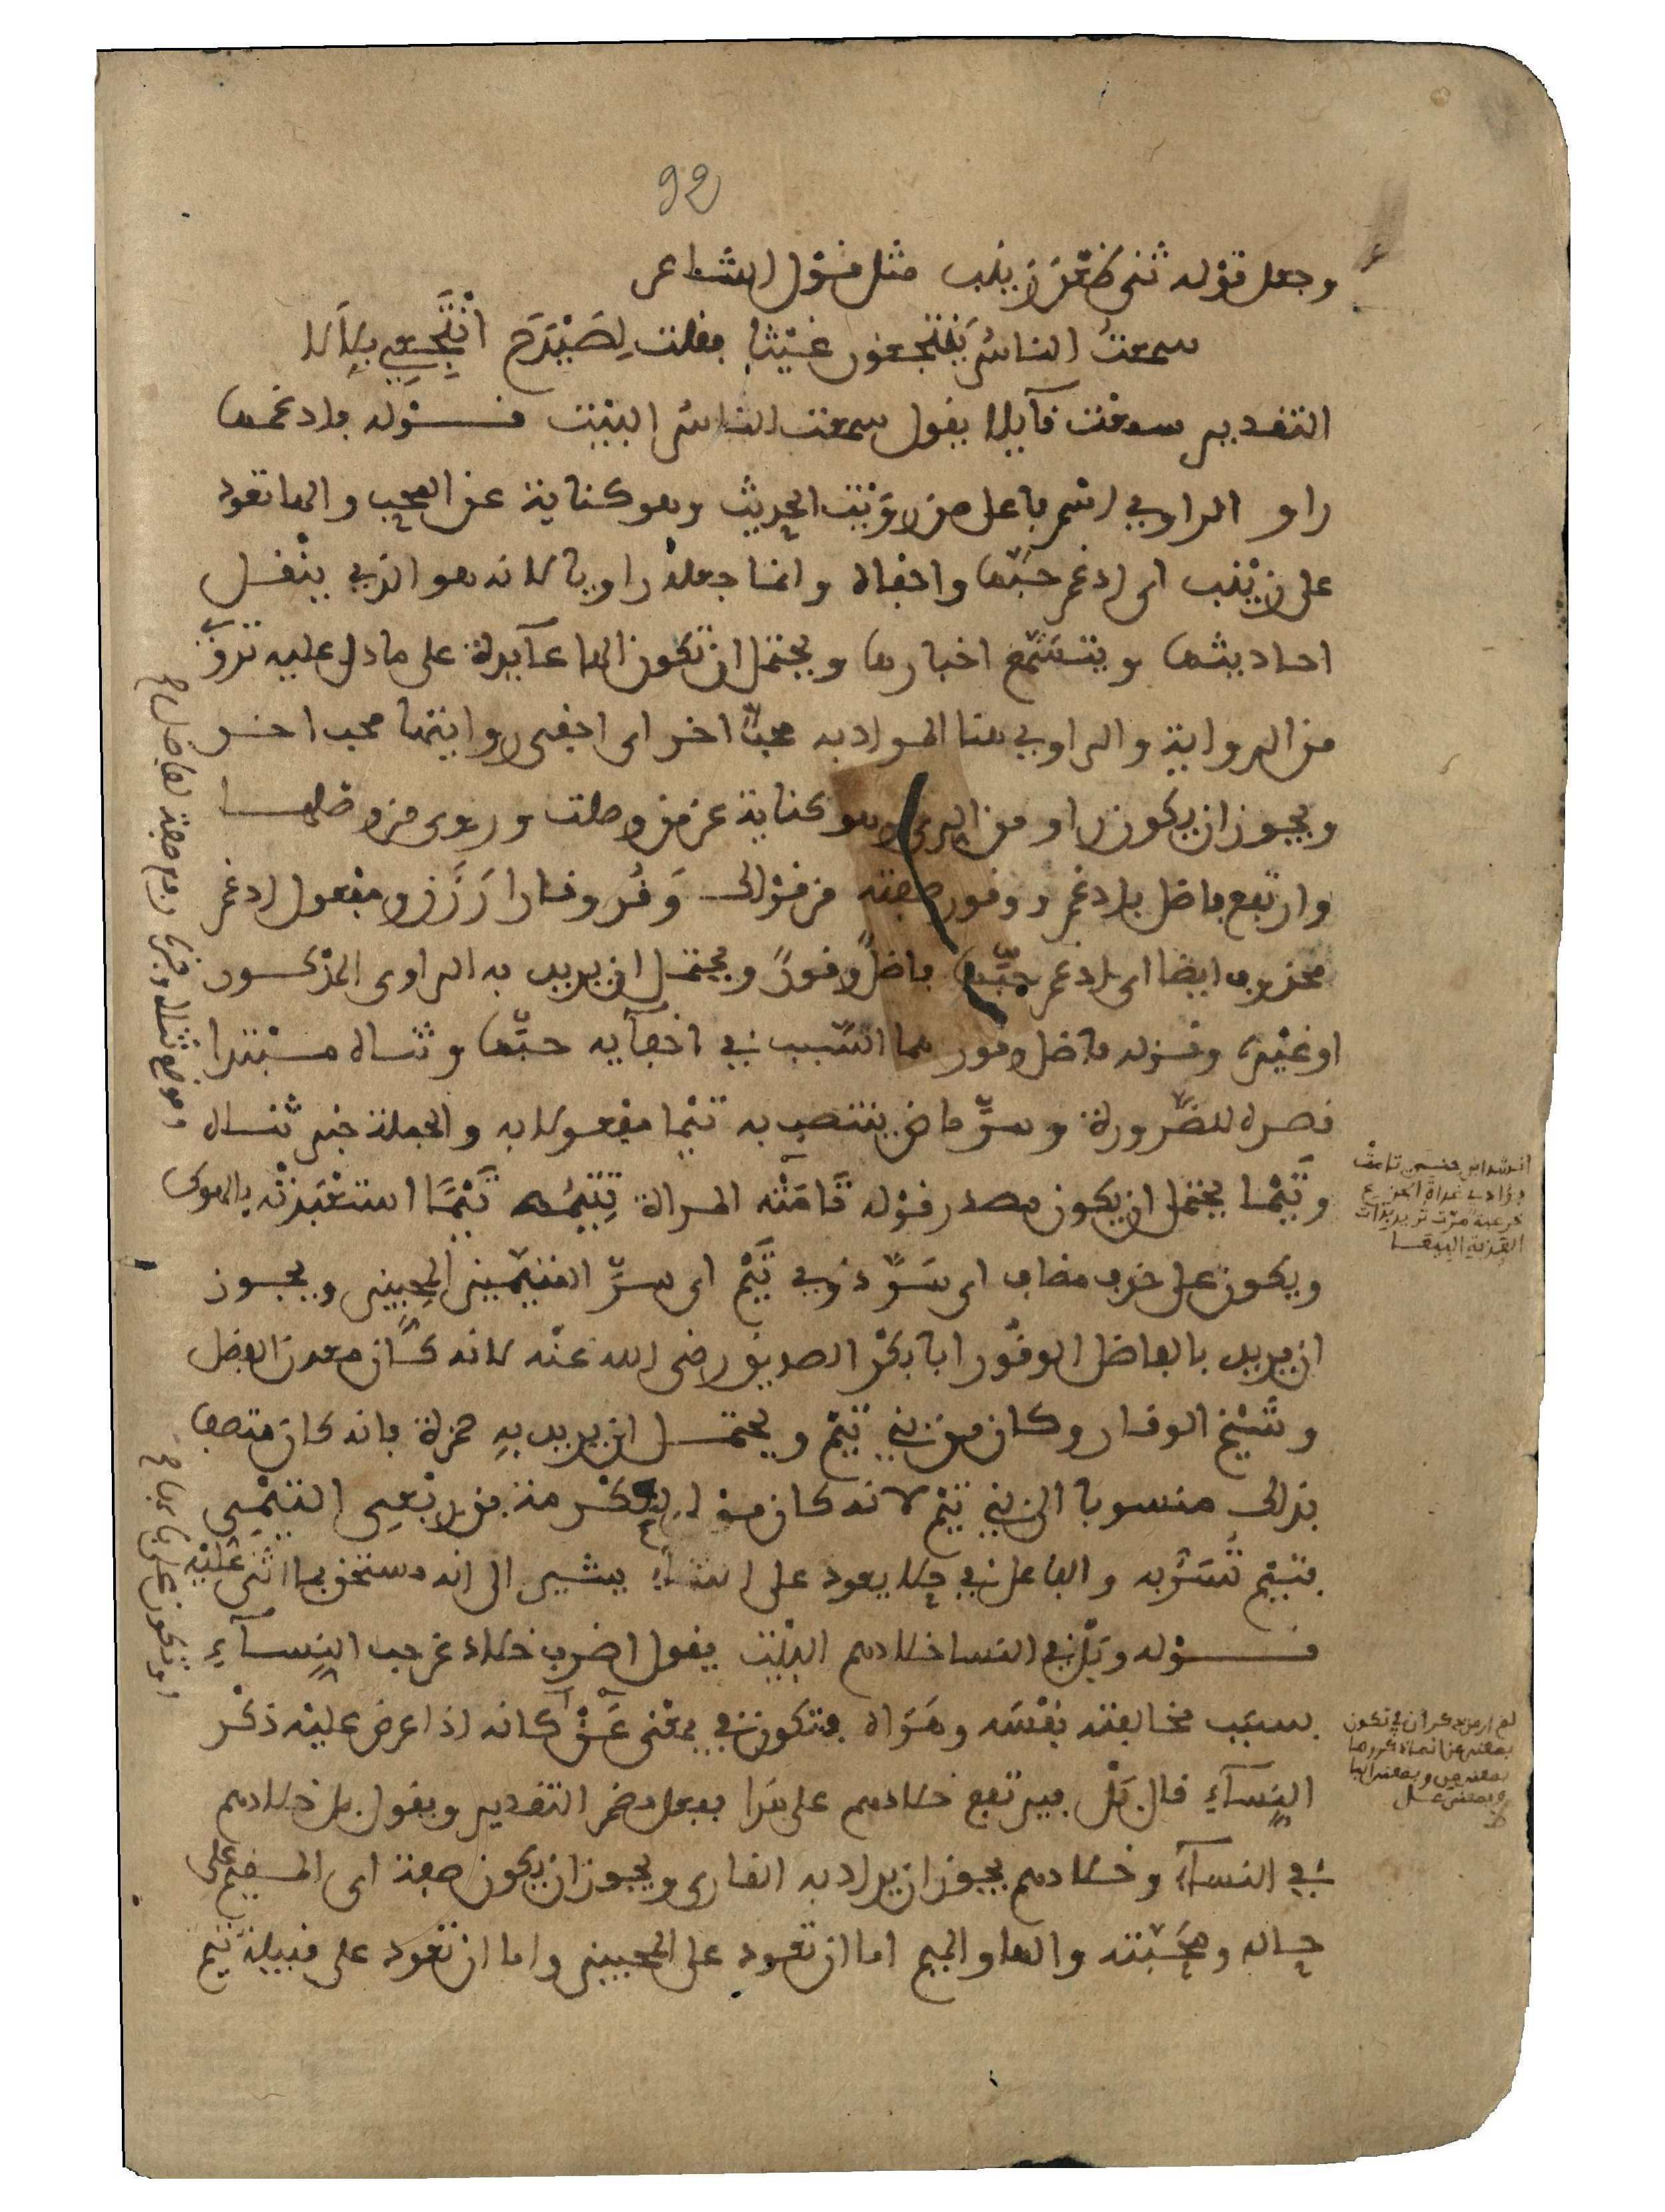 92
وجعل قوله ثنى ظعن زينب مثل قول الشاعر
سمعتُ الناسُ ينتجعون غيثا فقلت لِصَيْدَحَ انْتَجِعِي بِلَالا
التقدير سمعت قائلا يقول سمعت الناسُ البيت قوله فادغمها
راو الراوي اسم فاعل من رويت الحديث وهو كناية عن المحب والها تعود
على زينب اى ادغم حبّها واخفاه وانما جعله راويا لانه هو الذي ينقل
احاديثها ويتسمّع اخبارها ويحتمل ان تكون الها عآيدة على ما دل عليه تروّ
من الرواية والراوي هنا المراد به محبّ اخر اى اخفى روايتها محب اخر
ويجوز ان يكون راو من الرى وهو كناية عن من وصلت وروى من وصلها
وارتفع فاضل بادغم ووقور صفته من قولك وَقُر وقارا رَزَن ومفعول ادغم
محذوف ايضا اى ادغم حبّها فاضلٌ وقورٌ ويحتمل ان يريد به الراوى المذكور
او غيره وقوله فاضل وقور هما السّبب في اخفآيه حبّها وثناه مبتدا
قصره للضّرورة وسرّ ماض ينتصب به تيما مفعولا به والجملة خبر ثناه
وتَيْما يحتمل ان يكون مصدر قوله تَامَتْه المراة تتيمه تَيْمًا استعبدته بالهوى
ويكون على حذف مضاف اى سَرّ ذوي تَيْم اى سرّ المتيمين المحبين ويجوز
ان يريد بالفاضل الوقُور ابا بكْر الصديق رضى الله عنْه لانه كان معدن الفضل
وشيْخ الوقار وكان من بني تيْم ويحتمل ان يريد بهِ حمزة فانه كان متصفا
بذلك منسوبا الى بني تيْم لانه كان مولى لعكْرمة بن ربْعِى التيْمِي
فتيْم تُسَرُّ به والفاعل في حلا يعود على الثنآء يشير الى انه مستحق بما اثنى عليْه
قوله وبَلْ في النسا خلادهم البيْت يقول اضرب خلاد عن حب النِسآءِ
بسبَب مخالفته نفْسَه وهَوَاه فتكون في بمعْنى عَنْ كانه اذا عرض عليْه ذكْر
النِسآءِ قال بَلْ فيرتفع خلادهم على هَذا بفعل مضمر التقدير ويقول بل خلادهم
في النسآء وخلادهم يجوز ان يراد به القارى ويجوز ان يكون صفة اى المقيم على
حاله ومحَبته والها والميم اما ان تعود على المحبين واما ان تعود على قبيلة تيم